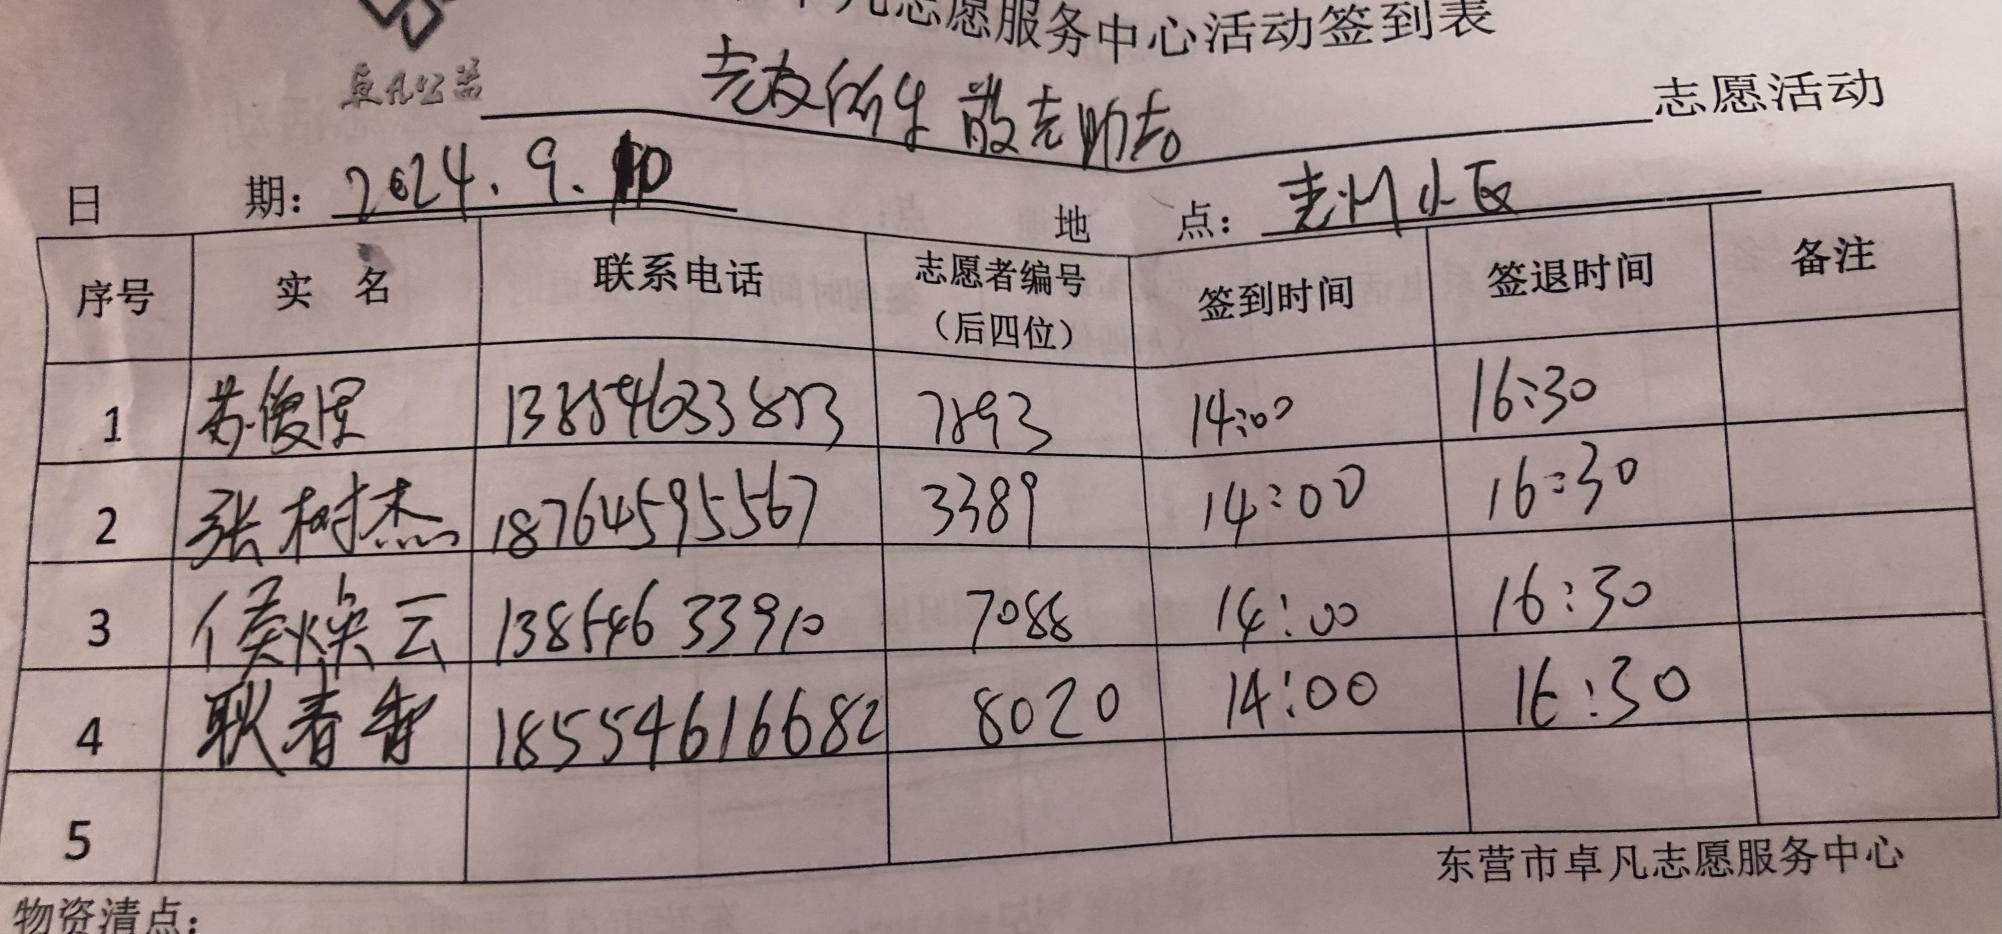 凡志愿服务中心活动签到表
卓凡公益
老有所生 敬老助老 志愿活动
日 期: 2024.9.10 地 点: 小区
序号 实 名 联系电话 志愿者编号（后四位） 签到时间 签退时间 备注
1 苏俊 13854633853 7893 14:00 16:30
2 张树杰 18764595567 3389 14:00 16:30
3 侯焕云 13854633910 7088 14:00 16:30
4 耿春 18554616682 8020 14:00 16:30
5
东营市卓凡志愿服务中心
物资清点: